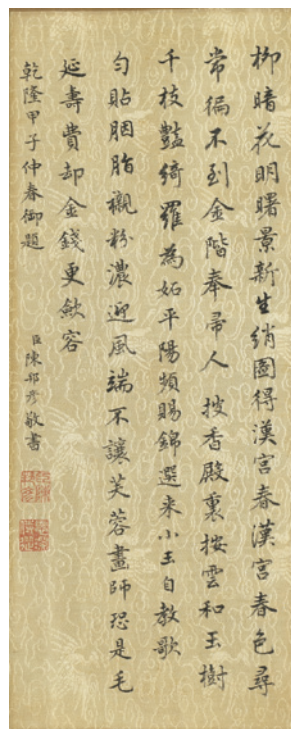 柳暗花明曙景新生綃圖得漢宮春漢宮春色尋
常徧不到金階奉帚人披香殿裏按雲和玉樹
千枝豔綺羅為妬平陽頻賜錦選来小玉自教歌
勻貼胭脂襯粉濃迎風端不讓芙蓉畫師恐是毛
延壽費却金錢更斂容
乾隆甲子仲春御題
臣陳邦彥敬書